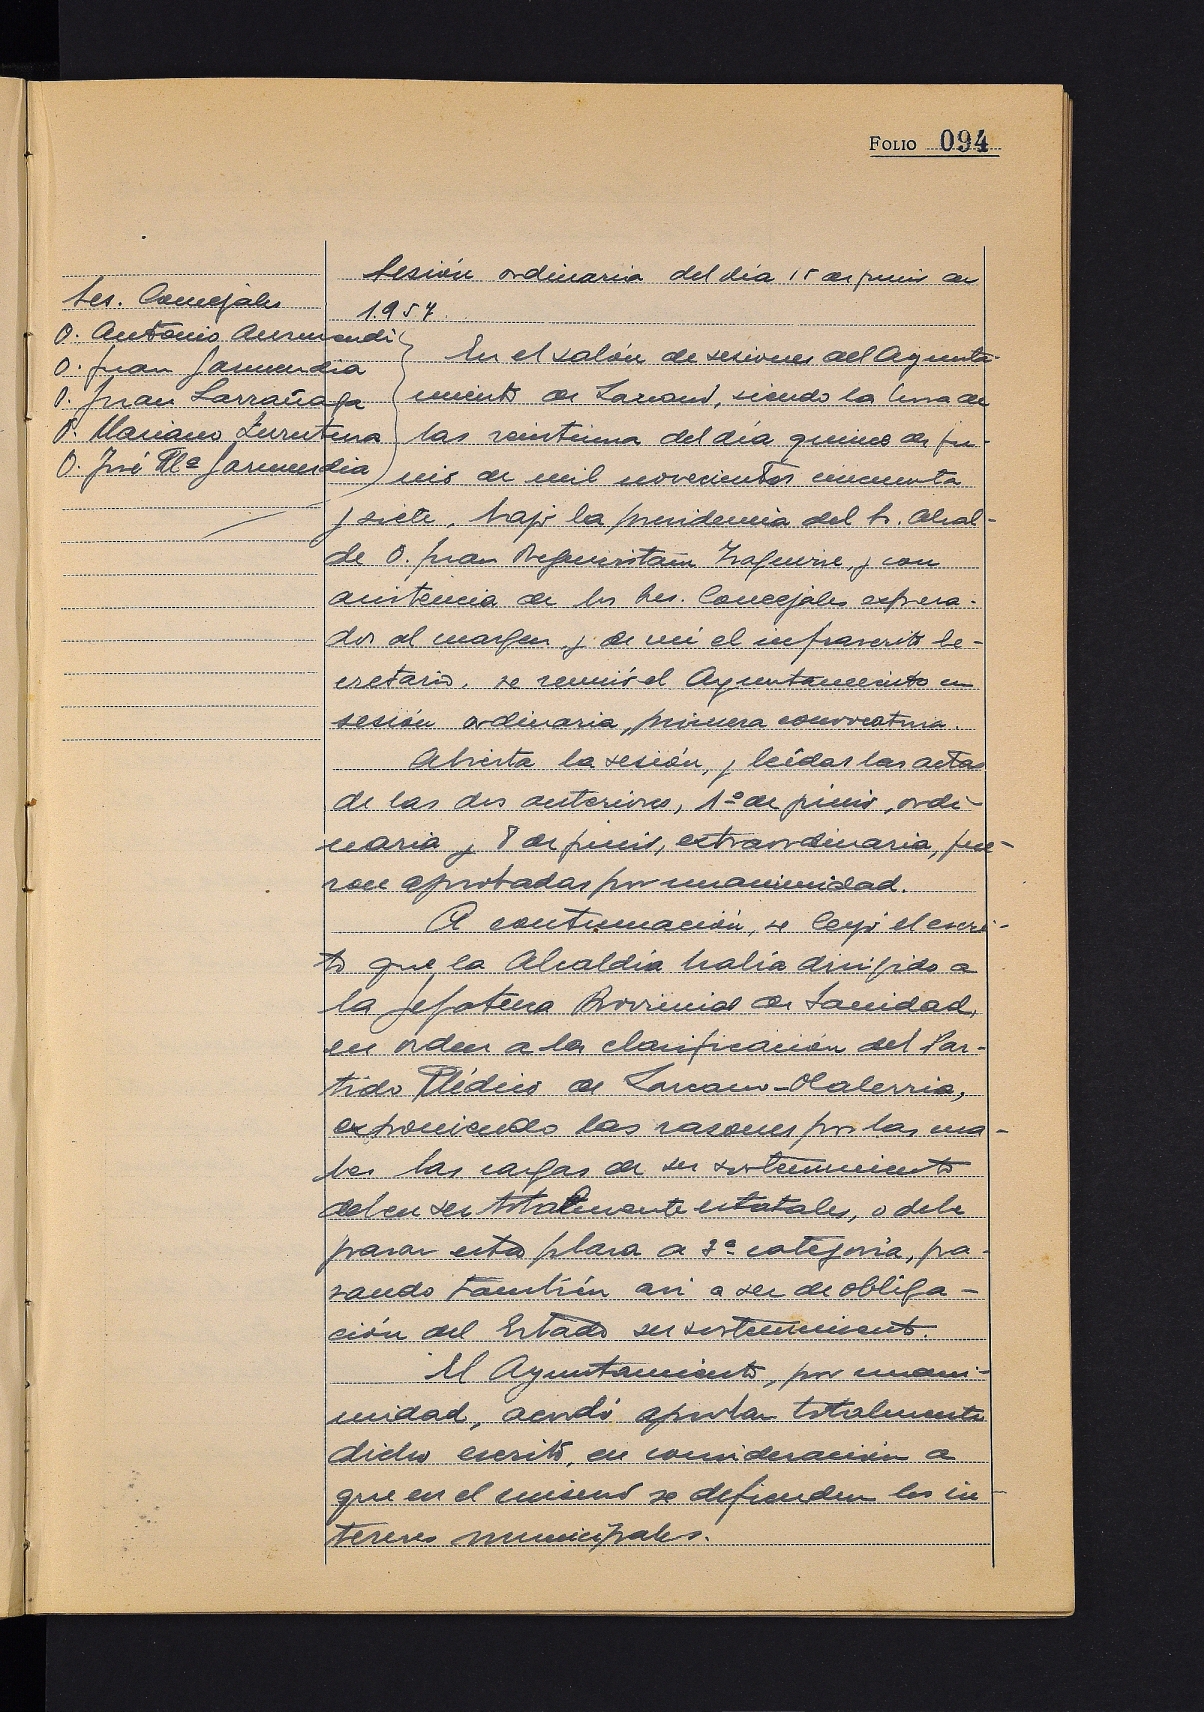 FOLIO 094
Sesión ordinaria del día 15 de junio de
1.957.
Sres. Concejales
D. Antonio Aurmendi
D. Juan Garmendia
D. Juan Larrañaga
D. Mariano Zurutuza
D. José Mª Garmendia
En el salón de sesiones del Ayunta-
miento de Lazcano, siendo la hora de
las veintiuna del día quince de ju-
nio de mil novecientos cincuenta
y siete, bajo la presidencia del Sr. Alcal-
de D. Juan Beguiristain Izaguirre, y con
asistencia de los Sres. Concejales expresa-
dos al margen, y de mí el infrascrito Se-
cretario, se reunió el Ayuntamiento en
sesión ordinaria, primera convocatoria.
Abierta la sesión, y leídas las actas
de las dos anteriores, 1º de junio, ordi-
naria y 8 de junio, extraordinaria, fue-
ron aprobadas por unanimidad.
A continuación, se leyó el escri-
to que la Alcaldía había dirigido a
la Jefatura Provincial de Sanidad,
en orden a la clasificación del Par-
tido Médico de Lazcano-Olaberria,
exponiendo las razones por las cua-
les las cargas de su sostenimiento
deben ser totalmente estatales, o debe
pasar esta plaza a 3ª categoría, pa-
sando también así a ser de obliga-
ción del Estado su sostenimiento.
El Ayuntamiento, por unani-
midad, acordó aprobar totalmente
dicho escrito, en consideración a
que en el mismo se defienden los in-
tereses municipales.